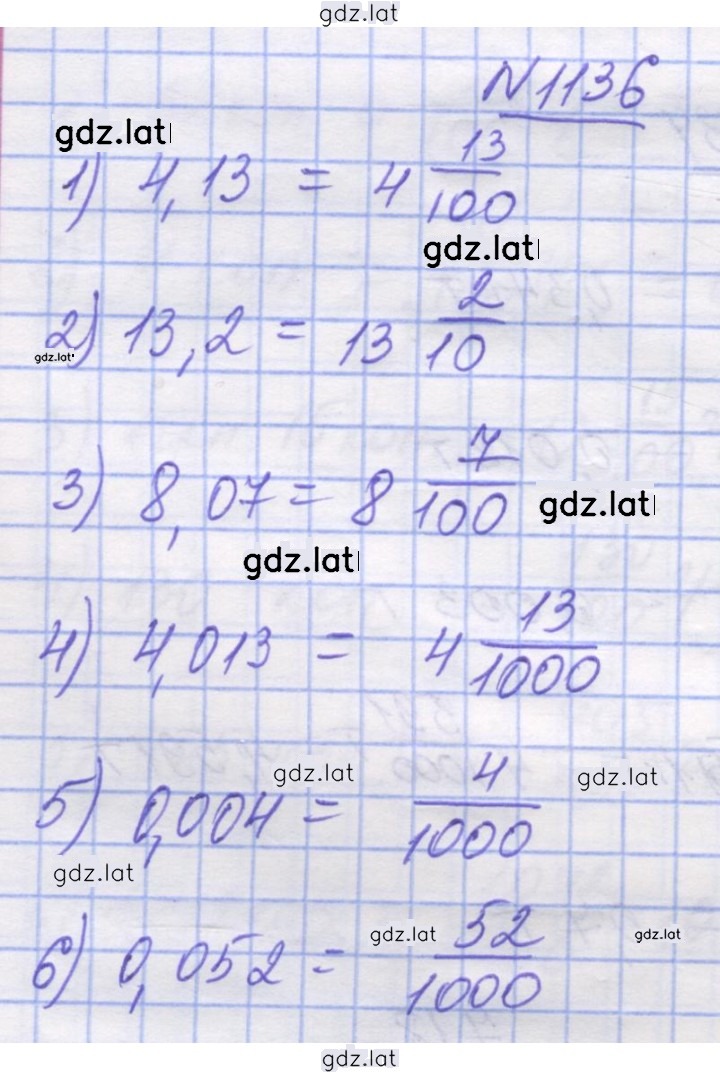 gdz.lat
N1136
gdz.lat
1) 4,13 = 4 13/100
gdz.lat
2) 13,2 = 13 2/10
gdz.lat
3) 8,07 = 8 7/100
gdz.lat
gdz.lat
4) 4,013 = 4 13/1000
gdz.lat
gdz.lat
5) 0,004 = 4/1000
gdz.lat
gdz.lat
gdz.lat
6) 0,052 = 52/1000
gdz.lat